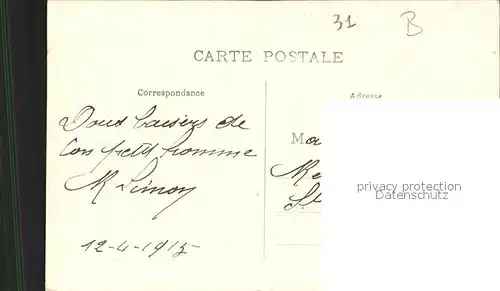 31 B
CARTE POSTALE
Correspondance
Adresse
Doux baisers de
ton petit homme
M Simon
12-4-1915
Ma
Me
St
privacy protection
Datenschutz